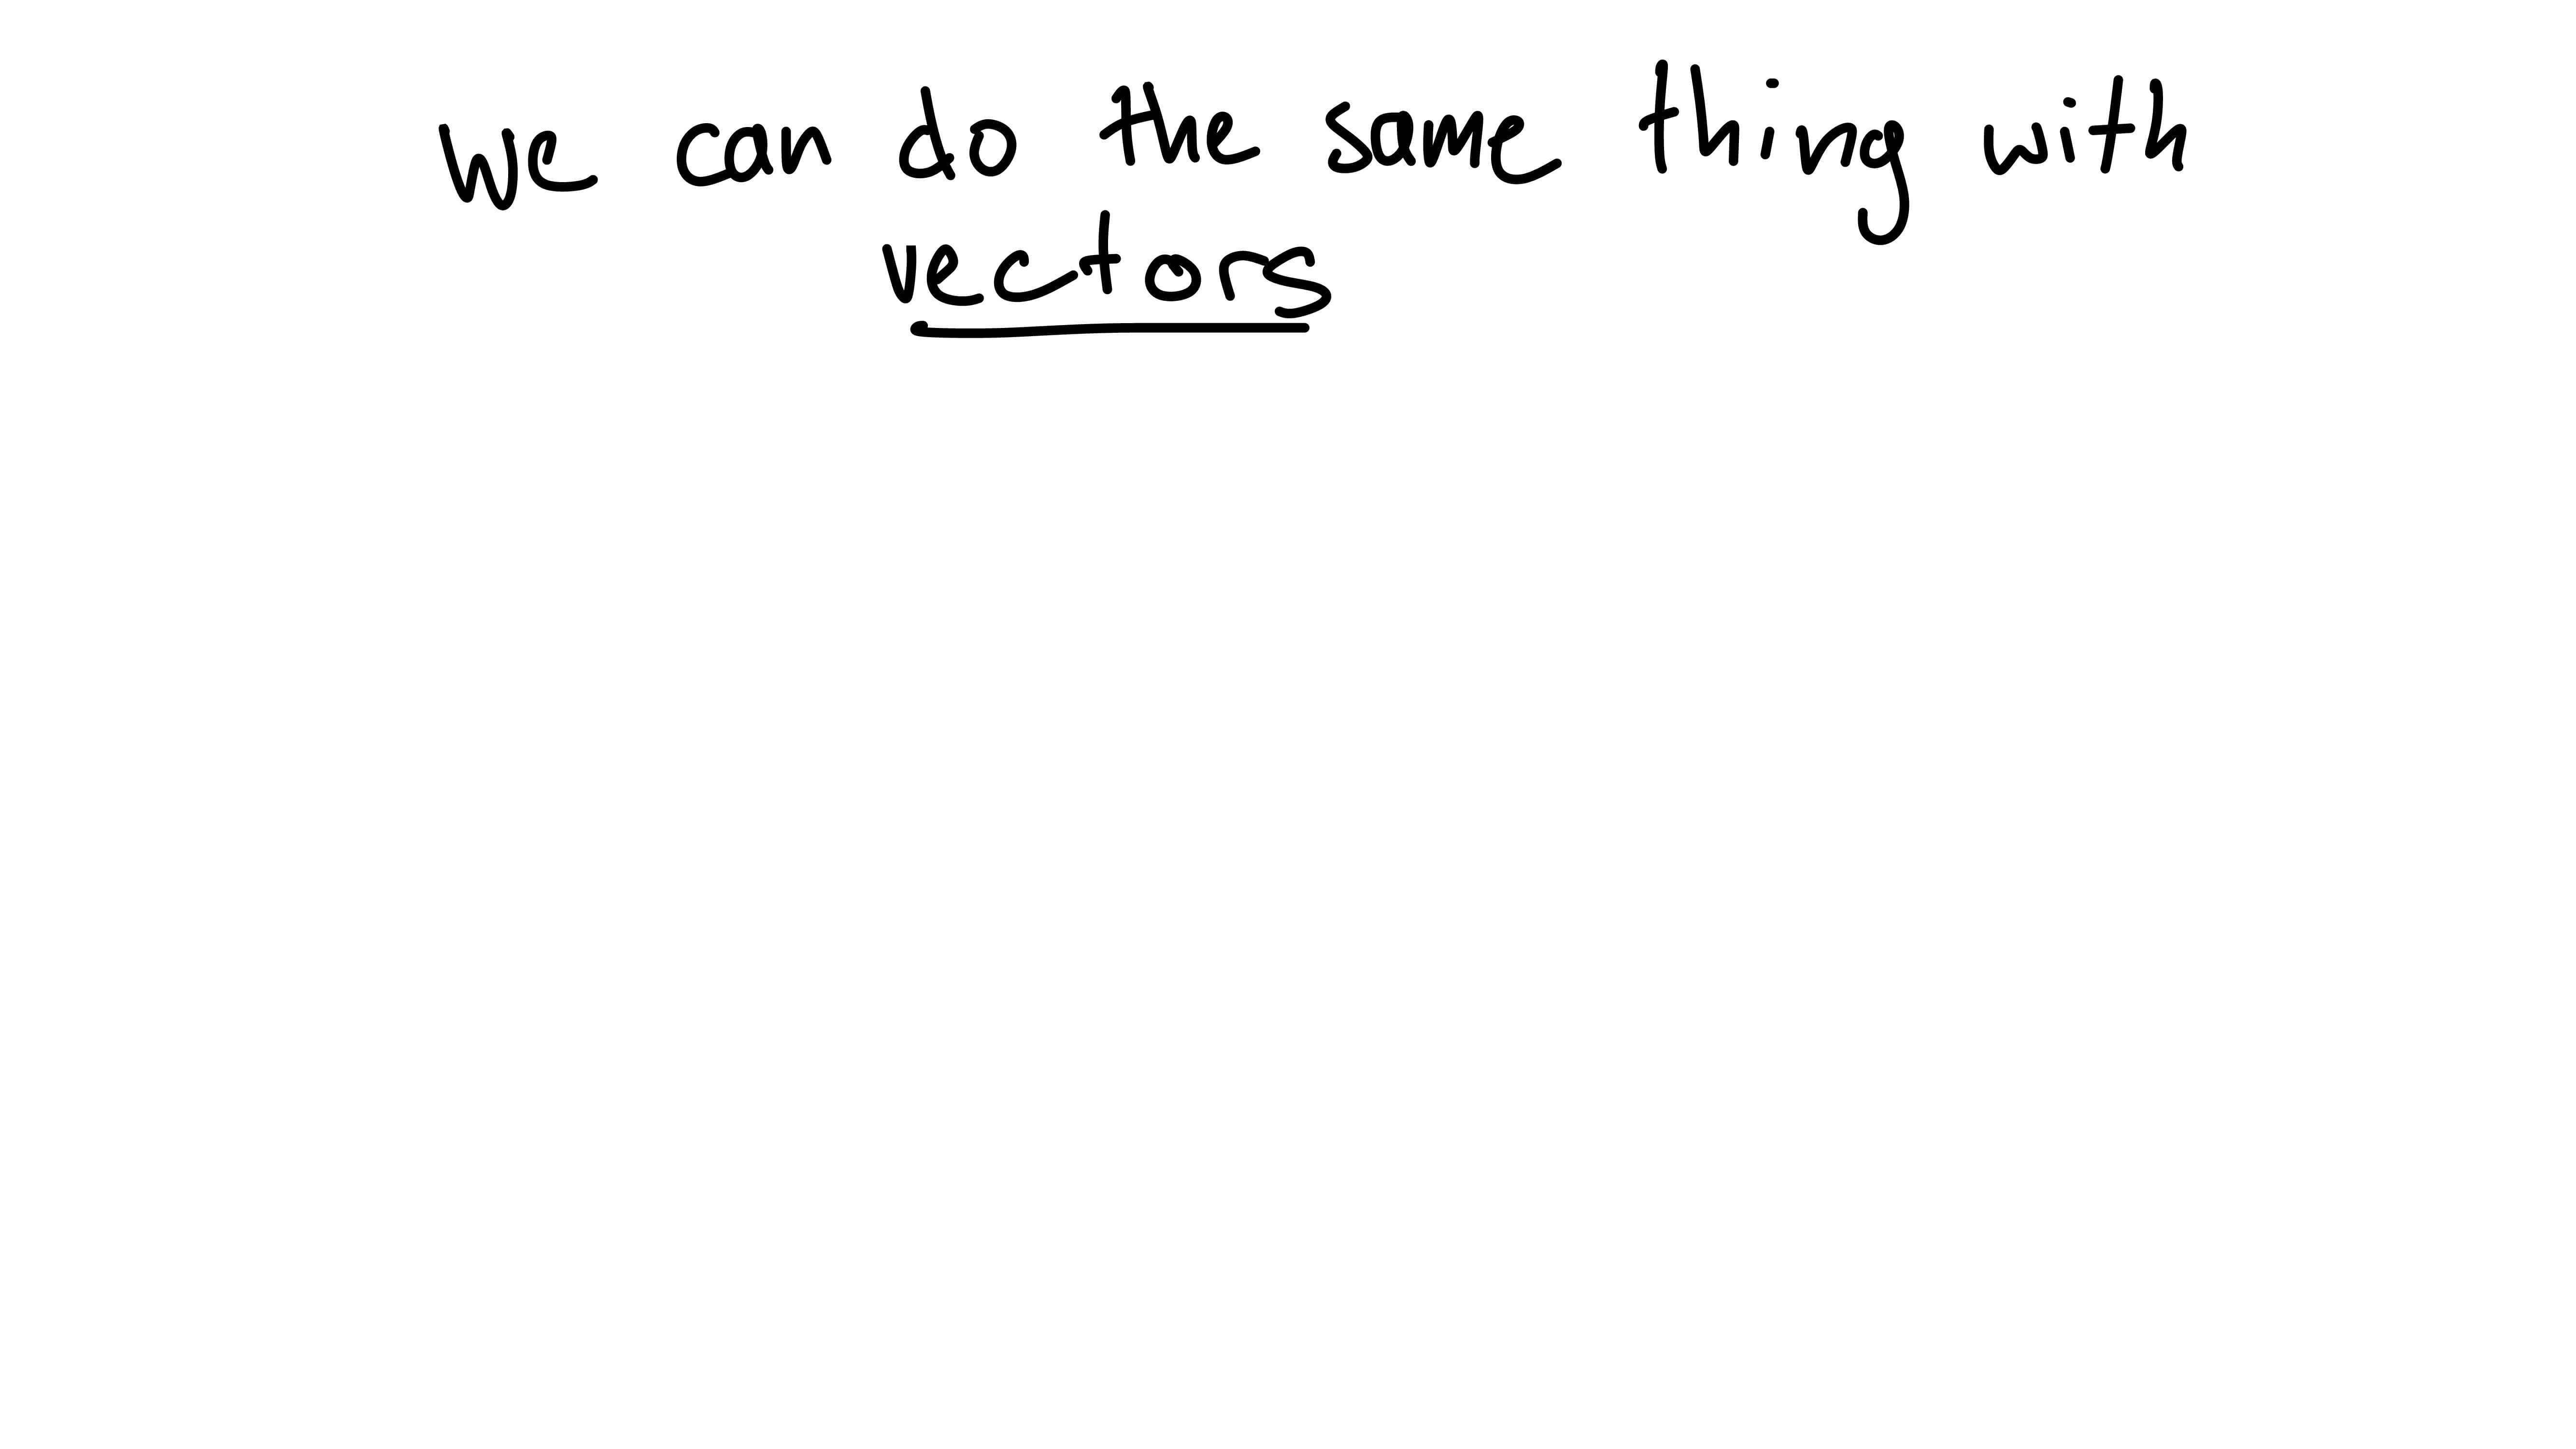 We can do the same thing with
vectors